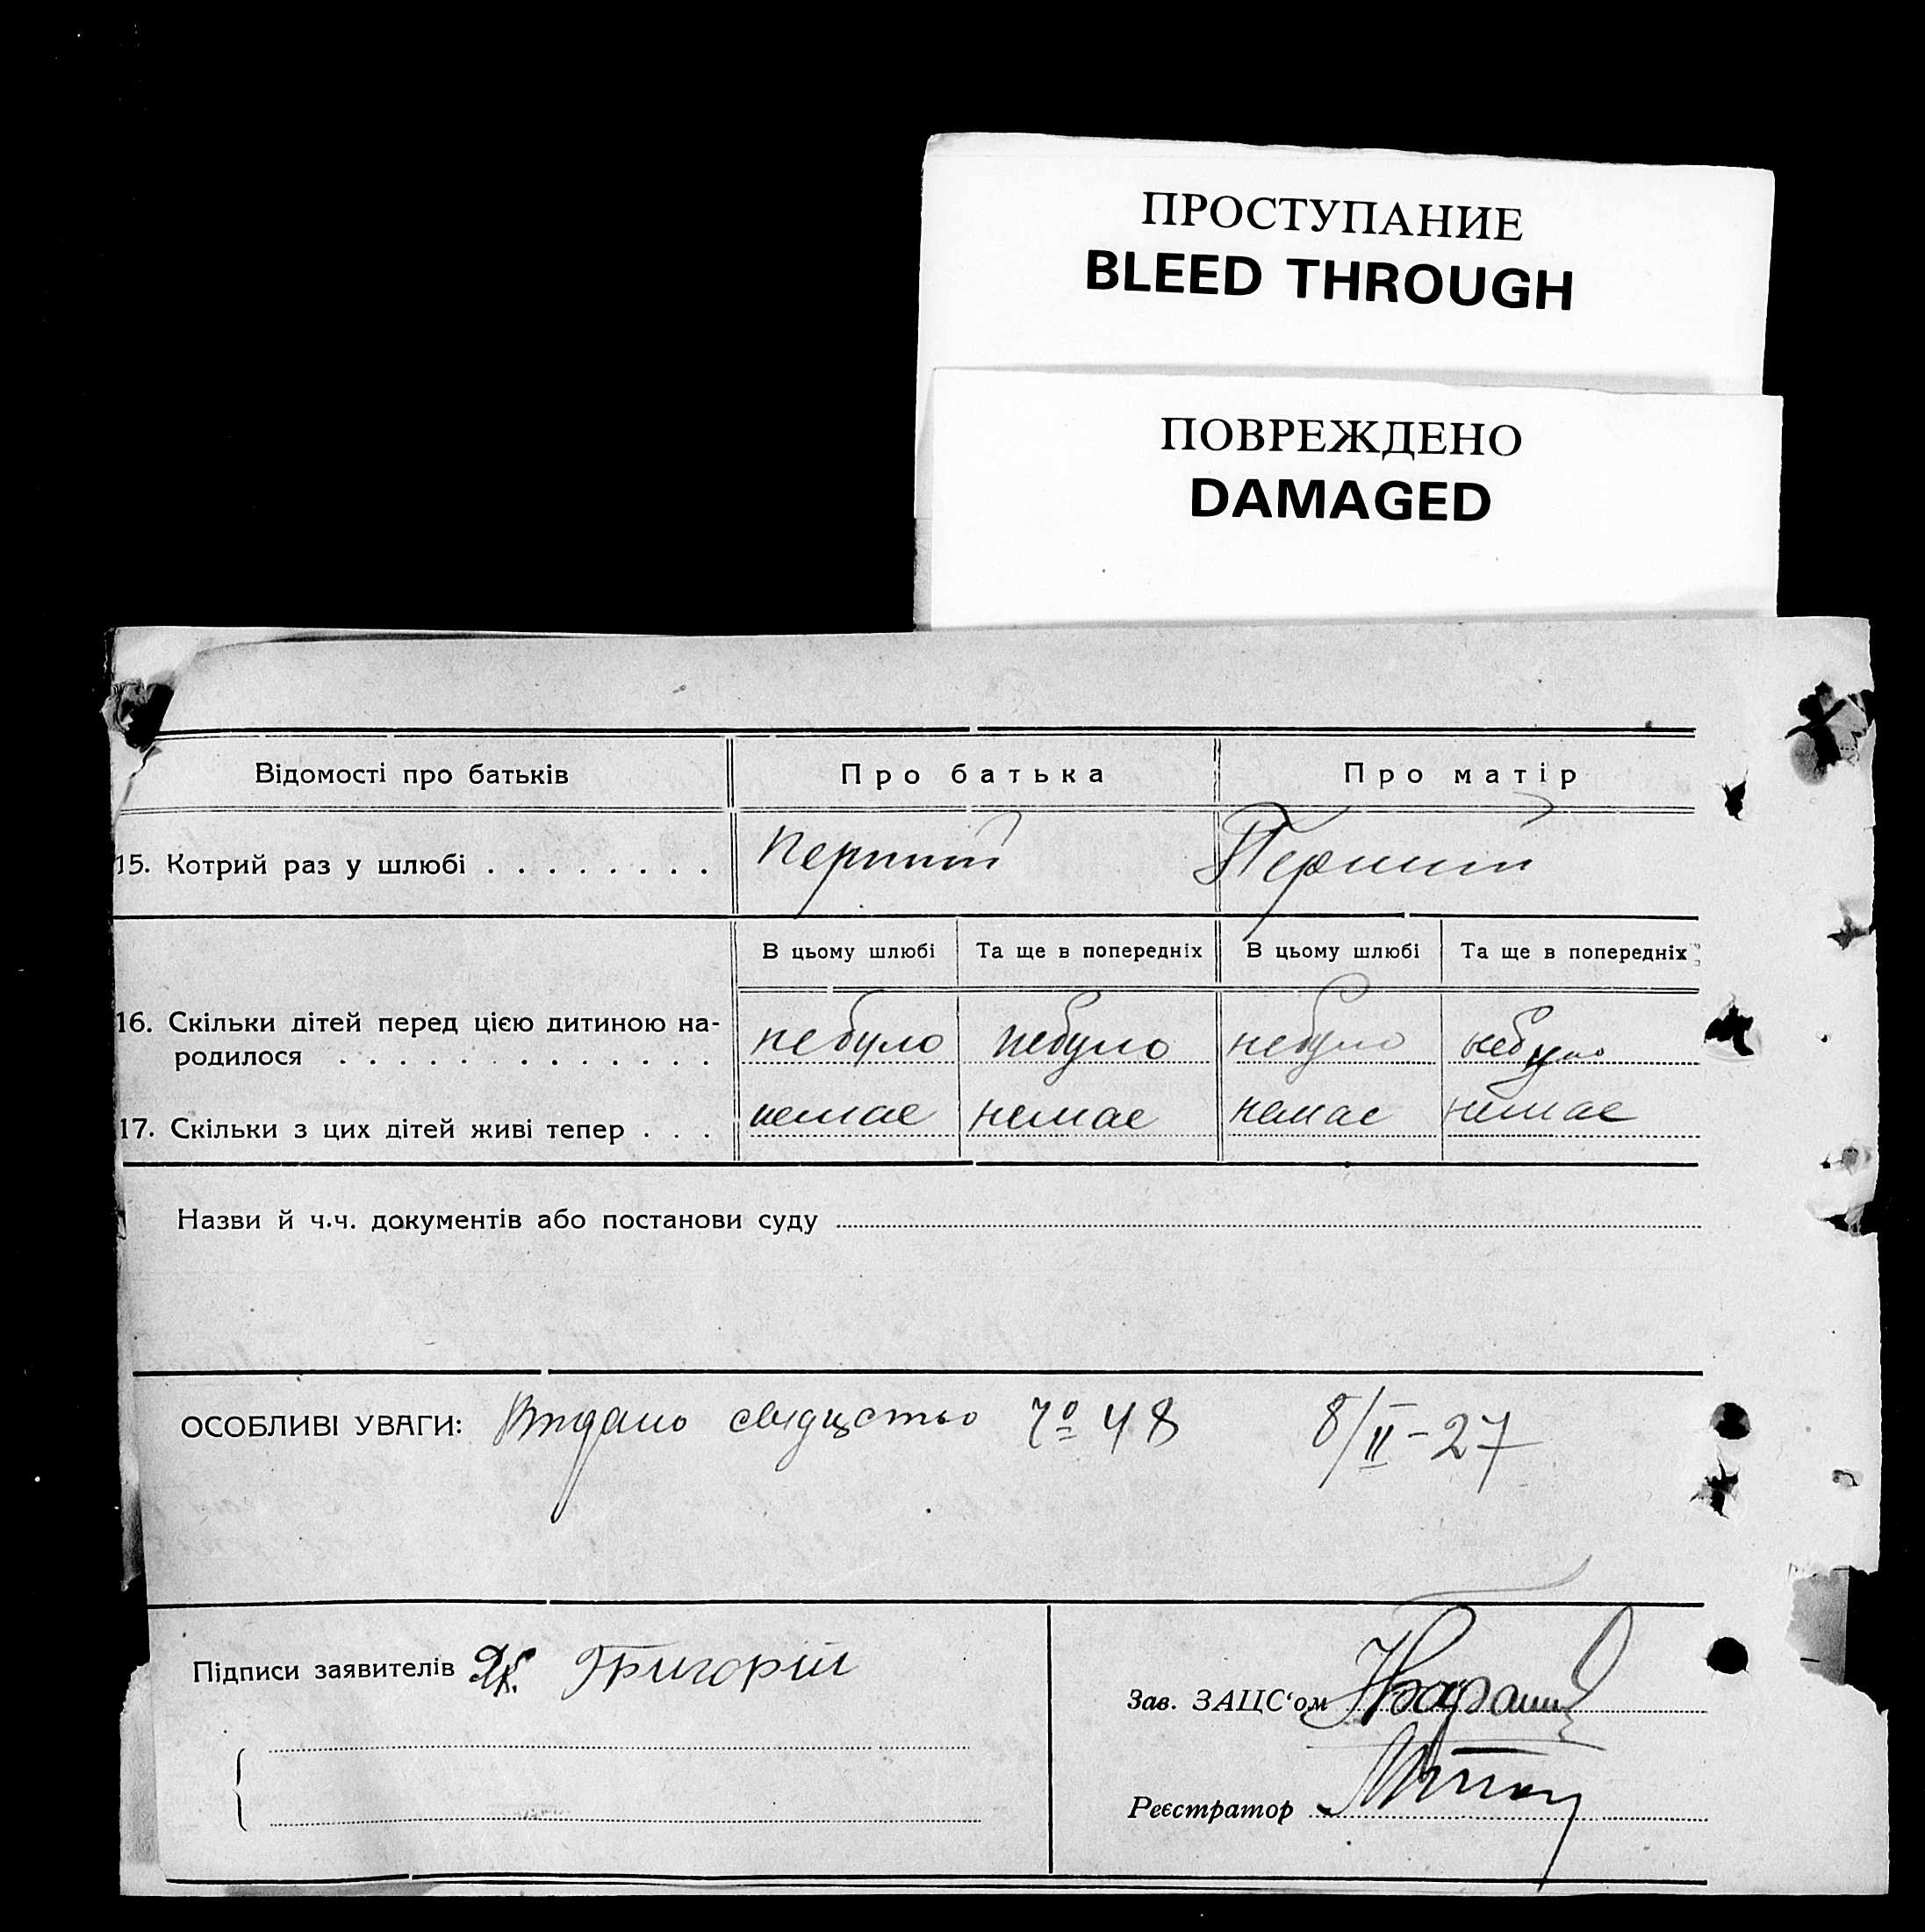 ПРОСТУПАНИЕ
BLEED THROUGH
ПОВРЕЖДЕНО
DAMAGED
Відомості про батьків Про батька Про матір
15. Котрий раз у шлюбі . . . . . . . . Перший Перший
В цьому шлюбі Та ще в попередніх В цьому шлюбі Та ще в попередніх
16. Скільки дітей перед цією дитиною на-
родилося . . . . . . . . . . . . . небуло небуло небуло небуло
17. Скільки з цих дітей живі тепер . . . немає немає немає немає
Назви й ч.ч. документів або постанови суду
ОСОБЛИВІ УВАГИ: Видано свидцтво 48 8/II-27
Підписи заявителів Григорій
Зав. ЗАЦС‘ом
Реєстратор